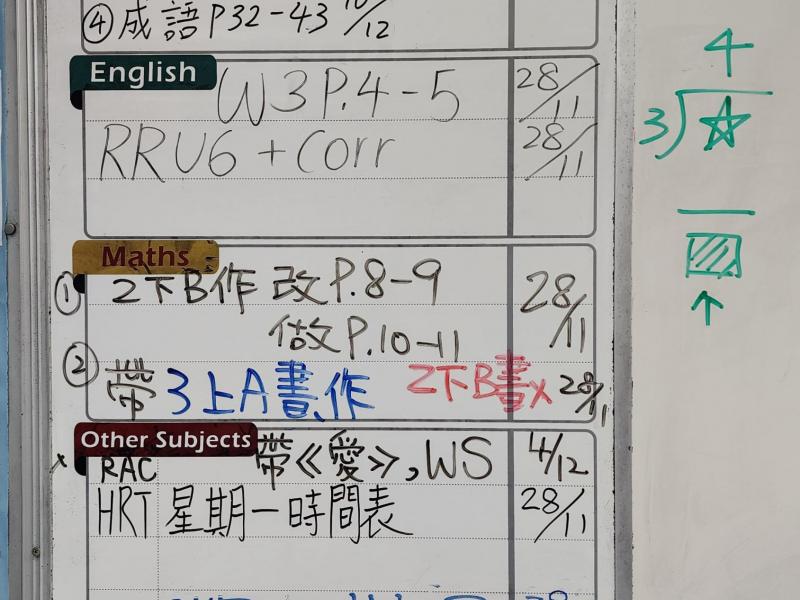 ④成語P32-43 10/12
English
W3P.4-5 28/11
RRU6+Corr 28/11
Maths
① 2下B作 改P.8-9 28/11
做P.10-11
② 帶3上A書、作 2下B書x 28/11
Other Subjects
x RAC 帶《愛》,WS 4/12
HRT 星期一時間表 28/11
4
3